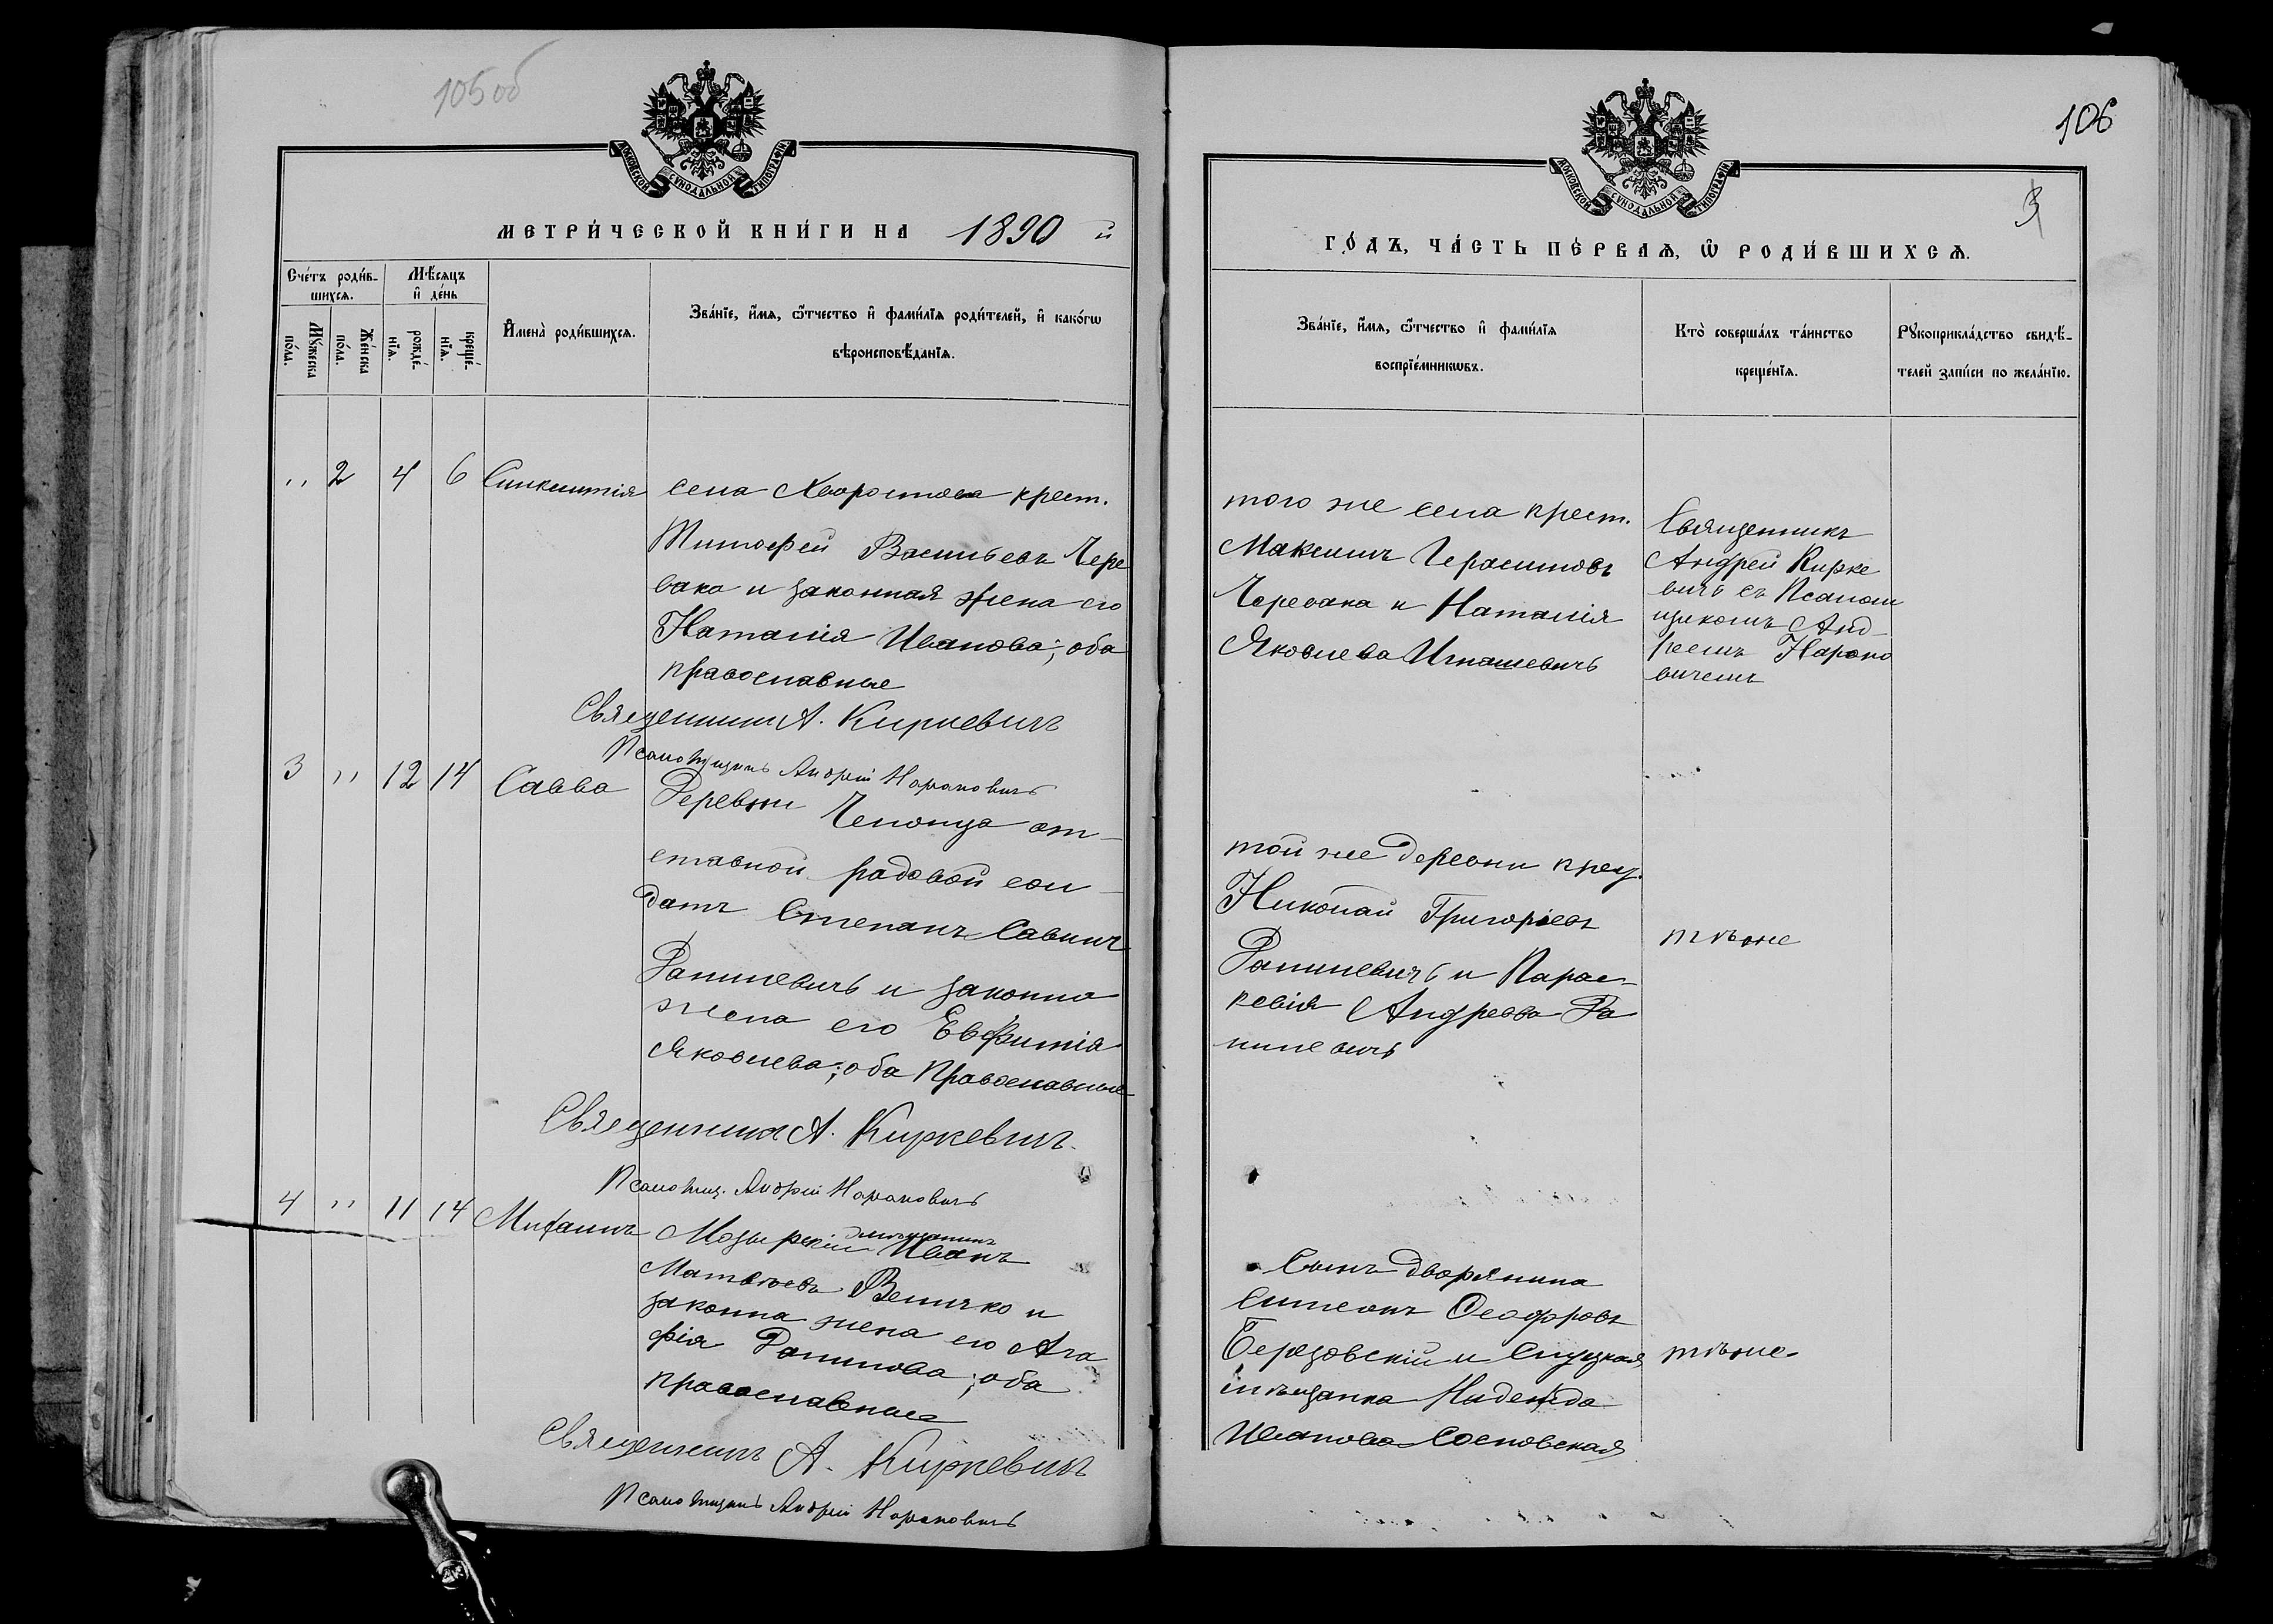 105 об
МОСКОВСКОЙ СѴНОДАЛЬНОЙ ТИПОГРАФІИ
МЕТРИ́ЧЕСКОЙ КНИ́ГИ НА 1890 й
Сче́тъ роди́в-
шихсѧ.
Мѣ́сѧцъ
и҆ де́нь
Мꙋ́жеска
по́ла.
Же́нска
по́ла.
рожде́-
нїѧ.
креще́-
нїѧ.
И҆мена̀ роди́вшихсѧ.
Зва́нїе, и҆́мѧ, ѻ҆́тчество и҆ фами́лїѧ роди́телей, и҆ како́гѡ
вѣроисповѣ́данїѧ.
" 2 4 6 Синклитія села Хворостова крест.
Тимофей Васильевъ Чере
вако и законная жена его
Наталія Иванова; оба
православные
Священникъ А. Киркевичъ
Псаломщикъ Андрей Наранович
3 " 12 14 Савва Деревни Чепонца от-
ставной рядовой сол-
датъ Степанъ Савинъ
Данилевичъ и законна
жена его Евфимія
Яковлева; оба православные
Священникъ А. Киркевичъ.
Псаломщ. Андрей Наранович
4 " 11 14 Михаилъ Мозырскій мѣщанинъ Иванъ
Матвѣевъ Величко и
законна жена его Ага
фія Данилова; оба
православные
Священникъ А. Киркевичъ
Псаломщикъ Андрей Наранович
106
3
МОСКОВСКОЙ СѴНОДАЛЬНОЙ ТИПОГРАФІИ
ГО́ДЪ, ЧА́СТЬ ПЕ́РВАѦ, Ѽ РОДИ́ВШИХСѦ.
Зва́нїе, и҆́мѧ, ѻ҆́тчество и҆ фами́лїѧ
воспрїе́мникѡвъ.
Кто̀ соверша́лъ та́инство
креще́нїѧ.
Рꙋкоприкла́дство свидѣ́-
телей за́писи по жела́нїю.
того же села крест.
Максимъ Герасимовъ
Черевака и Наталія
Яковлева Игнашевичъ
Священникъ
Андрей Кирке
вичъ съ Псалом
щикомъ Анд-
реемъ Нароно
вичемъ
той же деревни крест.
Николай Григоріевъ
Данилевичъ и Парас-
кевія Андреева Да
нилевичъ
тѣже
Сынъ дворянина
Симеонъ Ѳеодоровъ
Березовскій и Слуцкая
мѣщанка Надежда
Иванова Сосновская
тѣже.